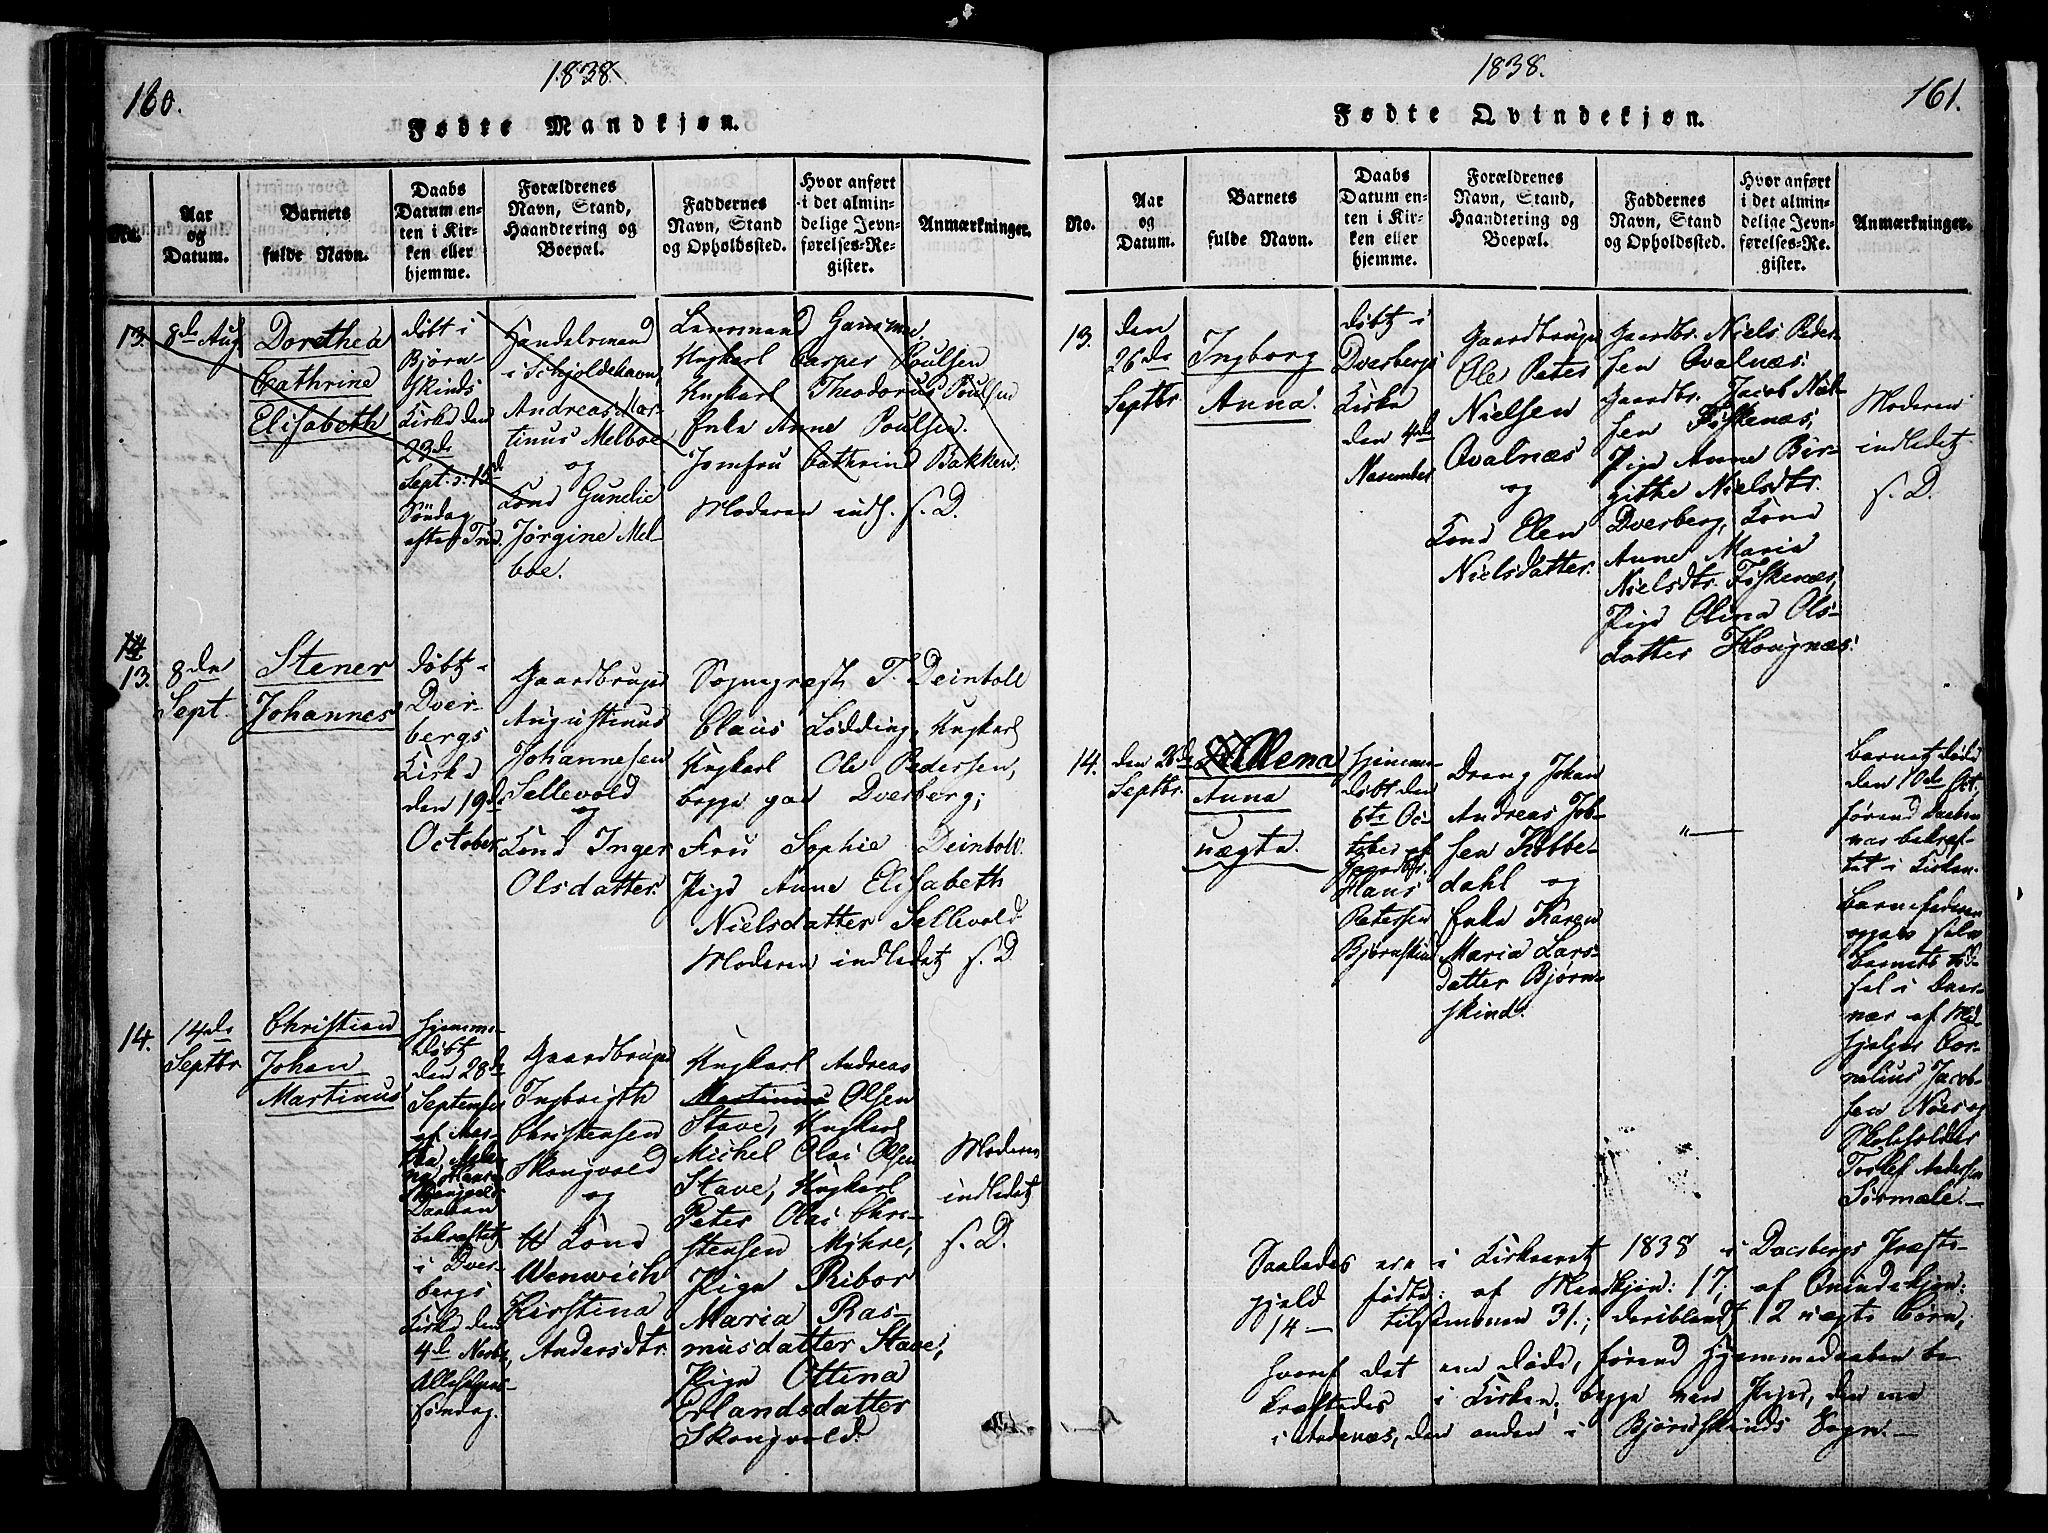 160.
1838.
Fødte Mandkjøn.
No.
Aar
og
Datum.
Barnets
fulde Navn.
Daabs
Datum en-
ten i Kir-
ken eller
hjemme.
Forældrenes
Navn, Stand,
Haandtering og
Boepæl.
Faddernes
Navn, Stand
og Opholdssted.
Hvor anført
i det almin-
delige Jevn-
førelses-Re-
gister.
Anmærkninger.
13.
8de Aug
Dorthea
Cathrine
Elisabeth
døbt i
Bjørn-
skinds
Kirke den
23de
Sept. s. 15de
Søndag
efter Trid.
Handelsmand
i Schjoldehavn,
Andreas Mar-
tinus Melboe
og
Kone Gunelie
Jørgine Mel-
boe.
Lensmand
Ungkarl Casper Poulsen
Ungkarl Theodorus Poulsen
Enke Anne Poulsen.
Jomfru Cathrine Bakken.
Moderen indl. s. D.
14
13.
8de
Sept.
Stener
Johannes
døbt i
Dver-
bergs
Kirke
den 19de
October
Gaardbruger
Augustinus
Johannesen
Sellevold
og
Kone Inger
Olsdatter
Sognepræst T. Deinboll
Claus Lødding, Ungkarl
Ungkarl Ole Pedersen,
begge paa Dverberg;
Fru Sophie Deinboll
Pige Anne Elisabeth
Nielsdatter Sellevold
Moderen indledet s. D
14.
14de
Septbr
Christian
Johan
Martinus
hjemme-
døbt
den 28de
September
af
Daaben
bekræftet
i Dver-
bergs
Kirke den
4de Novbr,
Allehelgens-
søndag.
Gaardbruger
Ingbrigth
Christensen
Skongvold
og
Kone
Wenwich
Kirstina
Andersdtr.
Ungkarl Andreas
Martinus Olsen
Stave, Ungkarl
Michel Olai Olsen
Stave, Ungkarl
Peter Olai Chri-
stensen Myhre,
Pige Ribor
Maria Ras-
musdatter Stave,
Pige Ottina
Erlandsdatter
Skongvold
Moderen
indledet
s. D.
1838.
161.
Fødte Qvindekjøn.
No.
Aar
og
Datum.
Barnets
fulde Navn.
Daabs
Datum en-
ten i Kir-
ken eller
hjemme.
Forældrenes
Navn, Stand,
Haandtering og
Boepæl.
Faddernes
Navn, Stand
og Opholdssted.
Hvor anført
i det almin-
delige Jevn-
førelses-Re-
gister.
Anmærkninger.
13.
den
26de
Septbr
Ingborg
Anna.
døbt i
Dverbergs
Kirke
den 4de
November
Gaardbruger
Ole Peter
Nielsen
Qvalnæs
og
Kone Elen
Nielsdatter.
Gaardbr. Niels Peder-
sen Qvalnæs.
Gaardbr. Jacob Niel-
sen Fiskenæs,
Pige Anne Bir-
githe Nielsdtr.
Dverberg, Kone
Anne Maria
Nielsdtr. Fiskenæs,
Pige Olina Ols-
datter Skognæs.
Moderen
indledet
s. D.
14.
den 28de
Septbr.
Olena
Anna
uægte.
hjemme-
døbt den
6te Oc-
tober af
Gaardbr.
Hans
Petersen
Bjørnskin
Dreng Johan
Andreas Job-
sen Kobbe-
dahl og
Enke Karen
Maria Lars-
datter Bjørn-
skind.
"—
Barnet døde
den 10de Oct.
førend Daaben
var bekræf-
tet i Kirken.
Barnefaderen
opgav selv
Barnets Fød-
sel i Over-
vær af Med-
hjelper Cor-
nelius Jacob-
sen Næs og
Skoleholder
Torlef Andersen
Sørmæle.—
Saaledes ere i Kirkeaaret 1838 i Dverbergs Præste-
gjeld fødte: af Mandkjøn: 17, af Qvindekjøn:
14 — tilsammen 31.; deriblandt 2 uægte Børn,
hvoraf det ene døde, førend Hjemmedaaben be-
kræftedes i Kirken; begge ved Piger, den ene
i Andenæs, den anden i Bjørnskinds Sogn.—